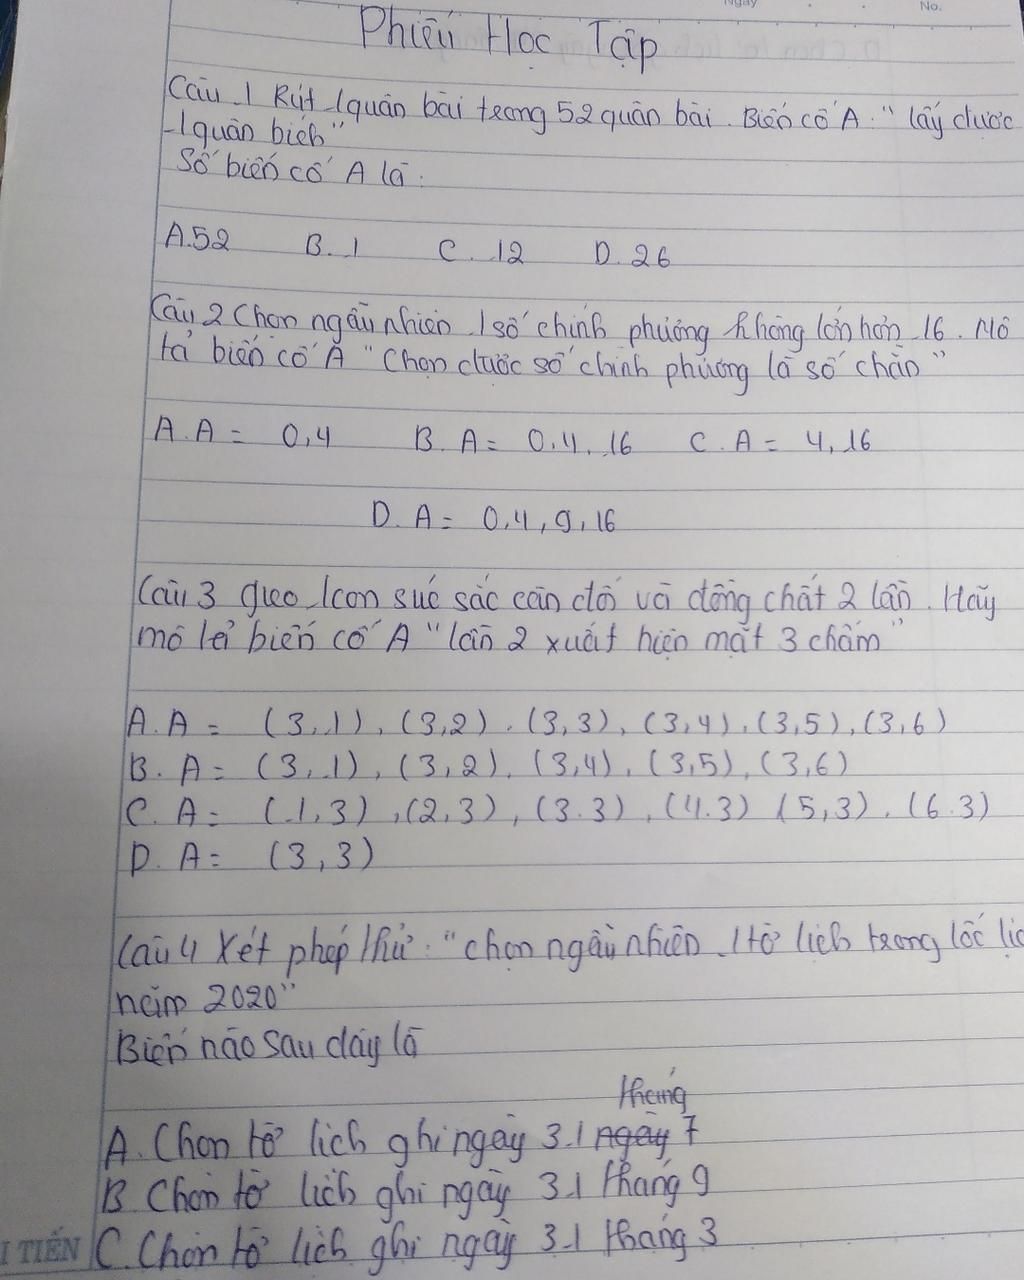 Ngày No.
Phiếu Học Tập
Câu 1 Rút 1 quân bài trong 52 quân bài. Biến cố A: "lấy được
1 quân bích"
Số biến cố A là:
A. 52 B. 1 C. 12 D. 26
Câu 2 Chọn ngẫu nhiên 1 số chính phương không lớn hơn 16. Mô
tả biến cố A "Chọn được số chính phương là số chẵn"
A. A = 0,4 B. A = 0,4,16 C. A = 4,16
D. A = 0,4,9,16
Câu 3 gieo 1 con súc sắc cân đối và đồng chất 2 lần. Hãy
mô tả biến cố A "lần 2 xuất hiện mặt 3 chấm"
A. A = (3,1), (3,2), (3,3), (3,4), (3,5), (3,6)
B. A = (3,1), (3,2), (3,4), (3,5), (3,6)
C. A = (1,3), (2,3), (3.3), (4.3) (5,3), (6.3)
D. A = (3,3)
Câu 4 Xét phép thử: "chọn ngẫu nhiên 1 tờ lịch trong lốc lịc
năm 2020"
Biến nào sau đây là
tháng
A. Chọn tờ lịch ghi ngày 31 ngày 7
B Chọn tờ lịch ghi ngày 31 tháng 9
C. Chọn tờ lịch ghi ngày 31 tháng 3
I TIẾN